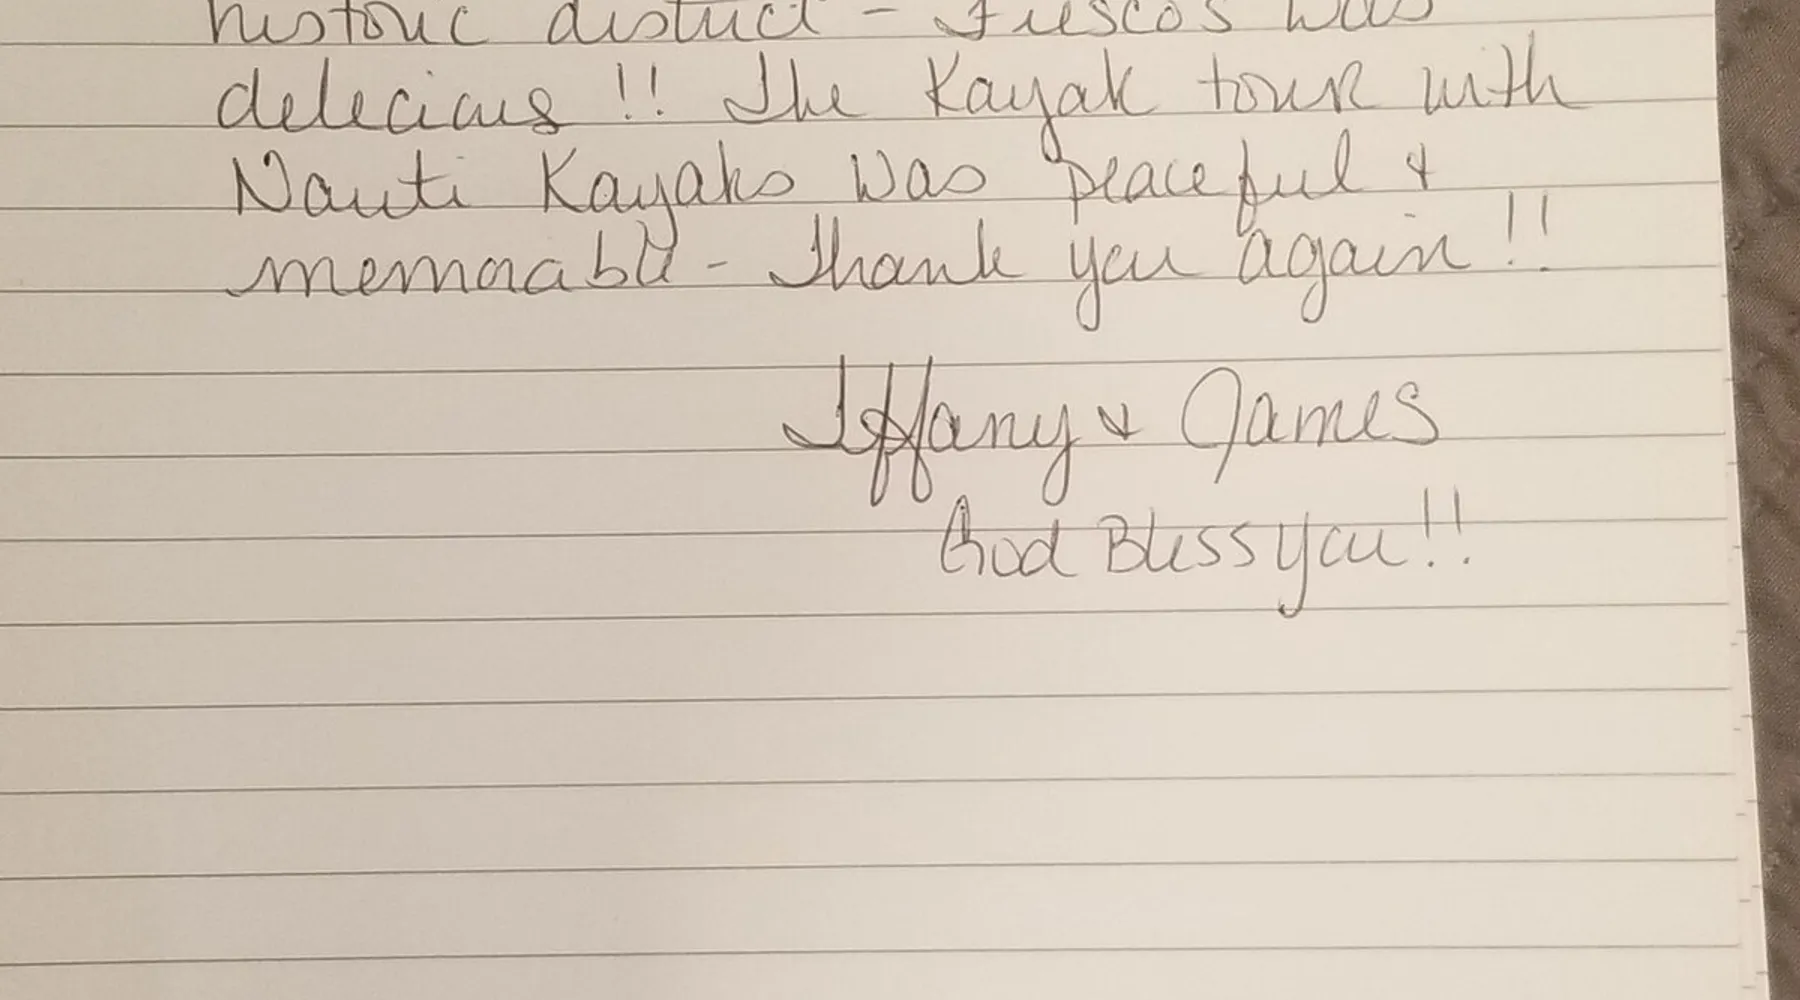 historic district - Frescos was
delecious !! The Kayak tour with
Nauti Kayaks was peaceful &
memorable - Thank you again !!
Tiffany & James
God Bless you !!